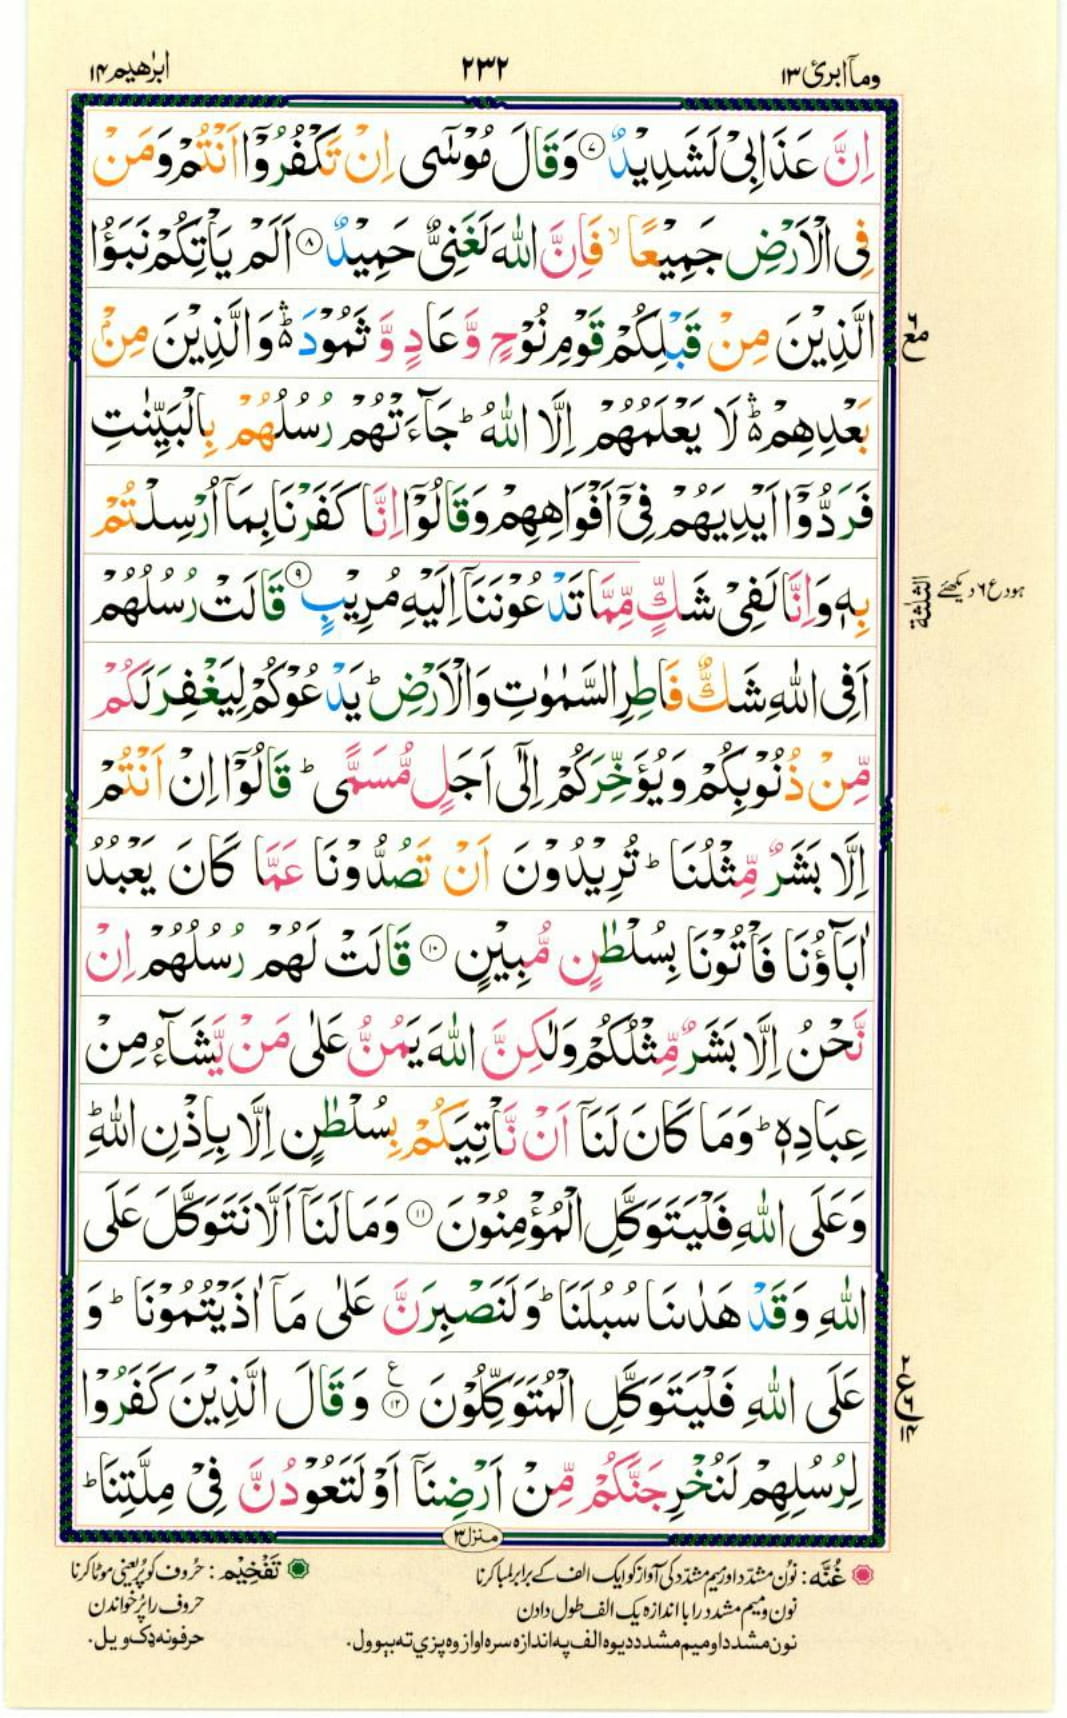 ومآ ابرئ ١٣
٢٣٢
ابرٰهیم ١٤
اِنَّ عَذَابِیْ لَشَدِیْدٌ ۝٧ وَقَالَ مُوْسٰۤی اِنْ تَكْفُرُوْۤا اَنْتُمْ وَمَنْ
فِی الْاَرْضِ جَمِیْعًا ۙ فَاِنَّ اللّٰهَ لَغَنِیٌّ حَمِیْدٌ ۝٨ اَلَمْ یَاْتِكُمْ نَبَؤُا
الَّذِیْنَ مِنْ قَبْلِكُمْ قَوْمِ نُوْحٍ وَّعَادٍ وَّثَمُوْدَ ۛؕ وَالَّذِیْنَ مِنْۢ
بَعْدِهِمْ ۛؕ لَا یَعْلَمُهُمْ اِلَّا اللّٰهُ ؕ جَآءَتْهُمْ رُسُلُهُمْ بِالْبَیِّنٰتِ
فَرَدُّوْۤا اَیْدِیَهُمْ فِیْۤ اَفْوَاهِهِمْ وَقَالُوْۤا اِنَّا كَفَرْنَا بِمَاۤ اُرْسِلْتُمْ
بِهٖ وَاِنَّا لَفِیْ شَكٍّ مِّمَّا تَدْعُوْنَنَاۤ اِلَیْهِ مُرِیْبٍ ۝٩ قَالَتْ رُسُلُهُمْ
اَفِی اللّٰهِ شَكٌّ فَاطِرِ السَّمٰوٰتِ وَالْاَرْضِ ؕ یَدْعُوْكُمْ لِیَغْفِرَ لَكُمْ
مِّنْ ذُنُوْبِكُمْ وَیُؤَخِّرَكُمْ اِلٰۤی اَجَلٍ مُّسَمًّی ؕ قَالُوْۤا اِنْ اَنْتُمْ
اِلَّا بَشَرٌ مِّثْلُنَا ؕ تُرِیْدُوْنَ اَنْ تَصُدُّوْنَا عَمَّا كَانَ یَعْبُدُ
اٰبَآؤُنَا فَاْتُوْنَا بِسُلْطٰنٍ مُّبِیْنٍ ۝١٠ قَالَتْ لَهُمْ رُسُلُهُمْ اِنْ
نَّحْنُ اِلَّا بَشَرٌ مِّثْلُكُمْ وَلٰكِنَّ اللّٰهَ یَمُنُّ عَلٰی مَنْ یَّشَآءُ مِنْ
عِبَادِهٖ ؕ وَمَا كَانَ لَنَاۤ اَنْ نَّاْتِیَكُمْ بِسُلْطٰنٍ اِلَّا بِاِذْنِ اللّٰهِ ؕ
وَعَلَی اللّٰهِ فَلْیَتَوَكَّلِ الْمُؤْمِنُوْنَ ۝١١ وَمَا لَنَاۤ اَلَّا نَتَوَكَّلَ عَلَی
اللّٰهِ وَقَدْ هَدٰىنَا سُبُلَنَا ؕ وَلَنَصْبِرَنَّ عَلٰی مَاۤ اٰذَیْتُمُوْنَا ؕ وَ
عَلَی اللّٰهِ فَلْیَتَوَكَّلِ الْمُتَوَكِّلُوْنَ ۝١٢ وَقَالَ الَّذِیْنَ كَفَرُوْا
لِرُسُلِهِمْ لَنُخْرِجَنَّكُمْ مِّنْ اَرْضِنَاۤ اَوْ لَتَعُوْدُنَّ فِیْ مِلَّتِنَا ؕ
مع ٦
الثلثة
ہود ع ٦ دیکھئے
٢
ع ٦
١٤
منزل ٣
غُنَّه : نون مشدّد اور میم مشدّد کی آواز کو ایک الف کے برابر لمبا کرنا
نون و میم مشدد را با اندازه یک الف طول دادن
نون مشدد او میم مشدد دیوه الف په اندازه سره اواز وه پزي ته بېوول.
تَفْخِیْم : حروف کو پُر یعنی موٹا کرنا
حروف را پُر خواندن
حرفونه ډک ویل.